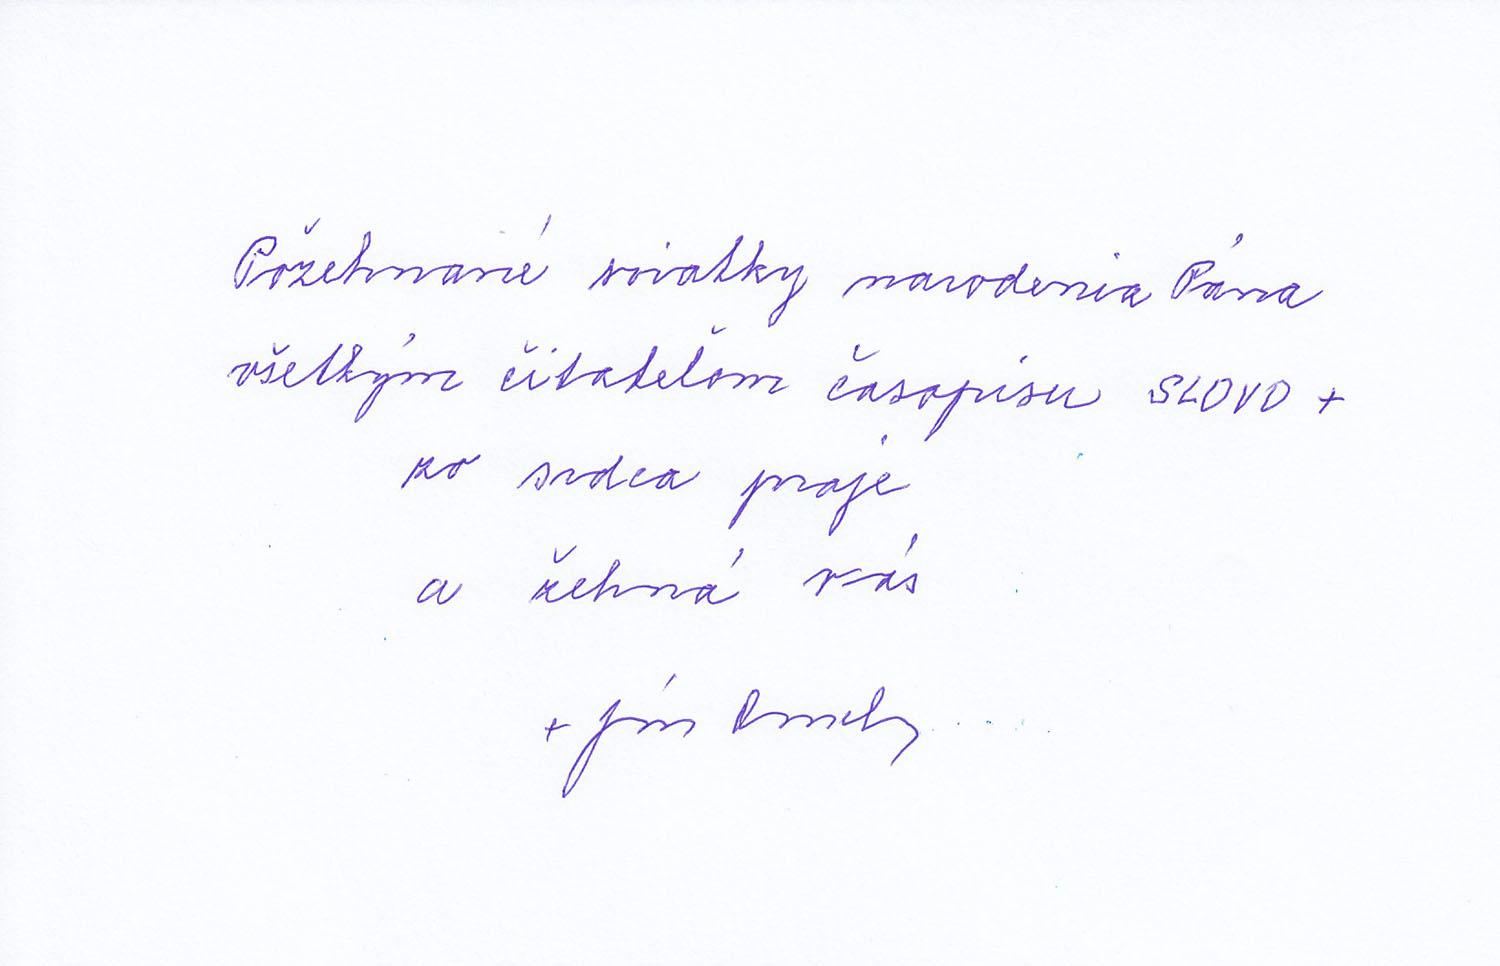 Požehnané sviatky narodenia Pána
všetkým čitateľom časopisu SLOVO +
zo srdca praje
a žehná vás
+ Ján